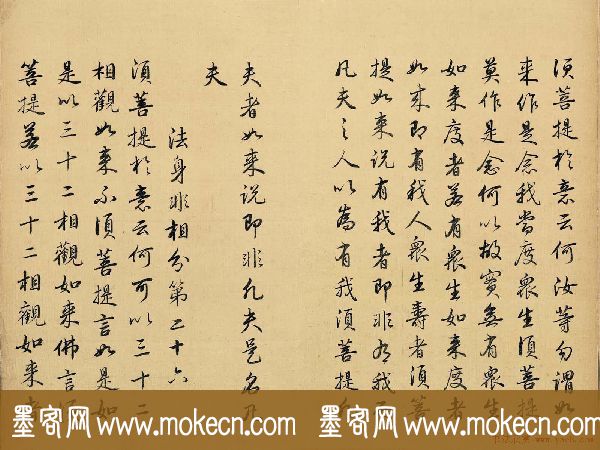 須菩提於意云何汝等勿謂如
來作是念我當度眾生須菩提
莫作是念何以故實無有眾生
如來度者若有眾生如來度者
如來即有我人眾生壽者須菩
提如來說有我者即非有我
凡夫之人以為有我須菩提凡
夫者如來說即非凡夫是名凡
夫
法身非相分第二十六
須菩提於意云何可以三十二
相觀如來不須菩提言如是如
是以三十二相觀如來佛言須
菩提若以三十二相觀如來者
墨客网 www.mokecn.com 墨客网 www.mokecn.com